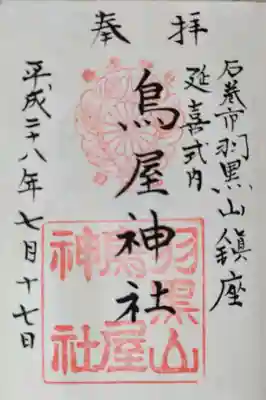 奉拝
石巻市羽黒山鎮座
延喜式内
鳥屋神社
平成二十八年七月十七日
羽黒山
鳥屋
神社